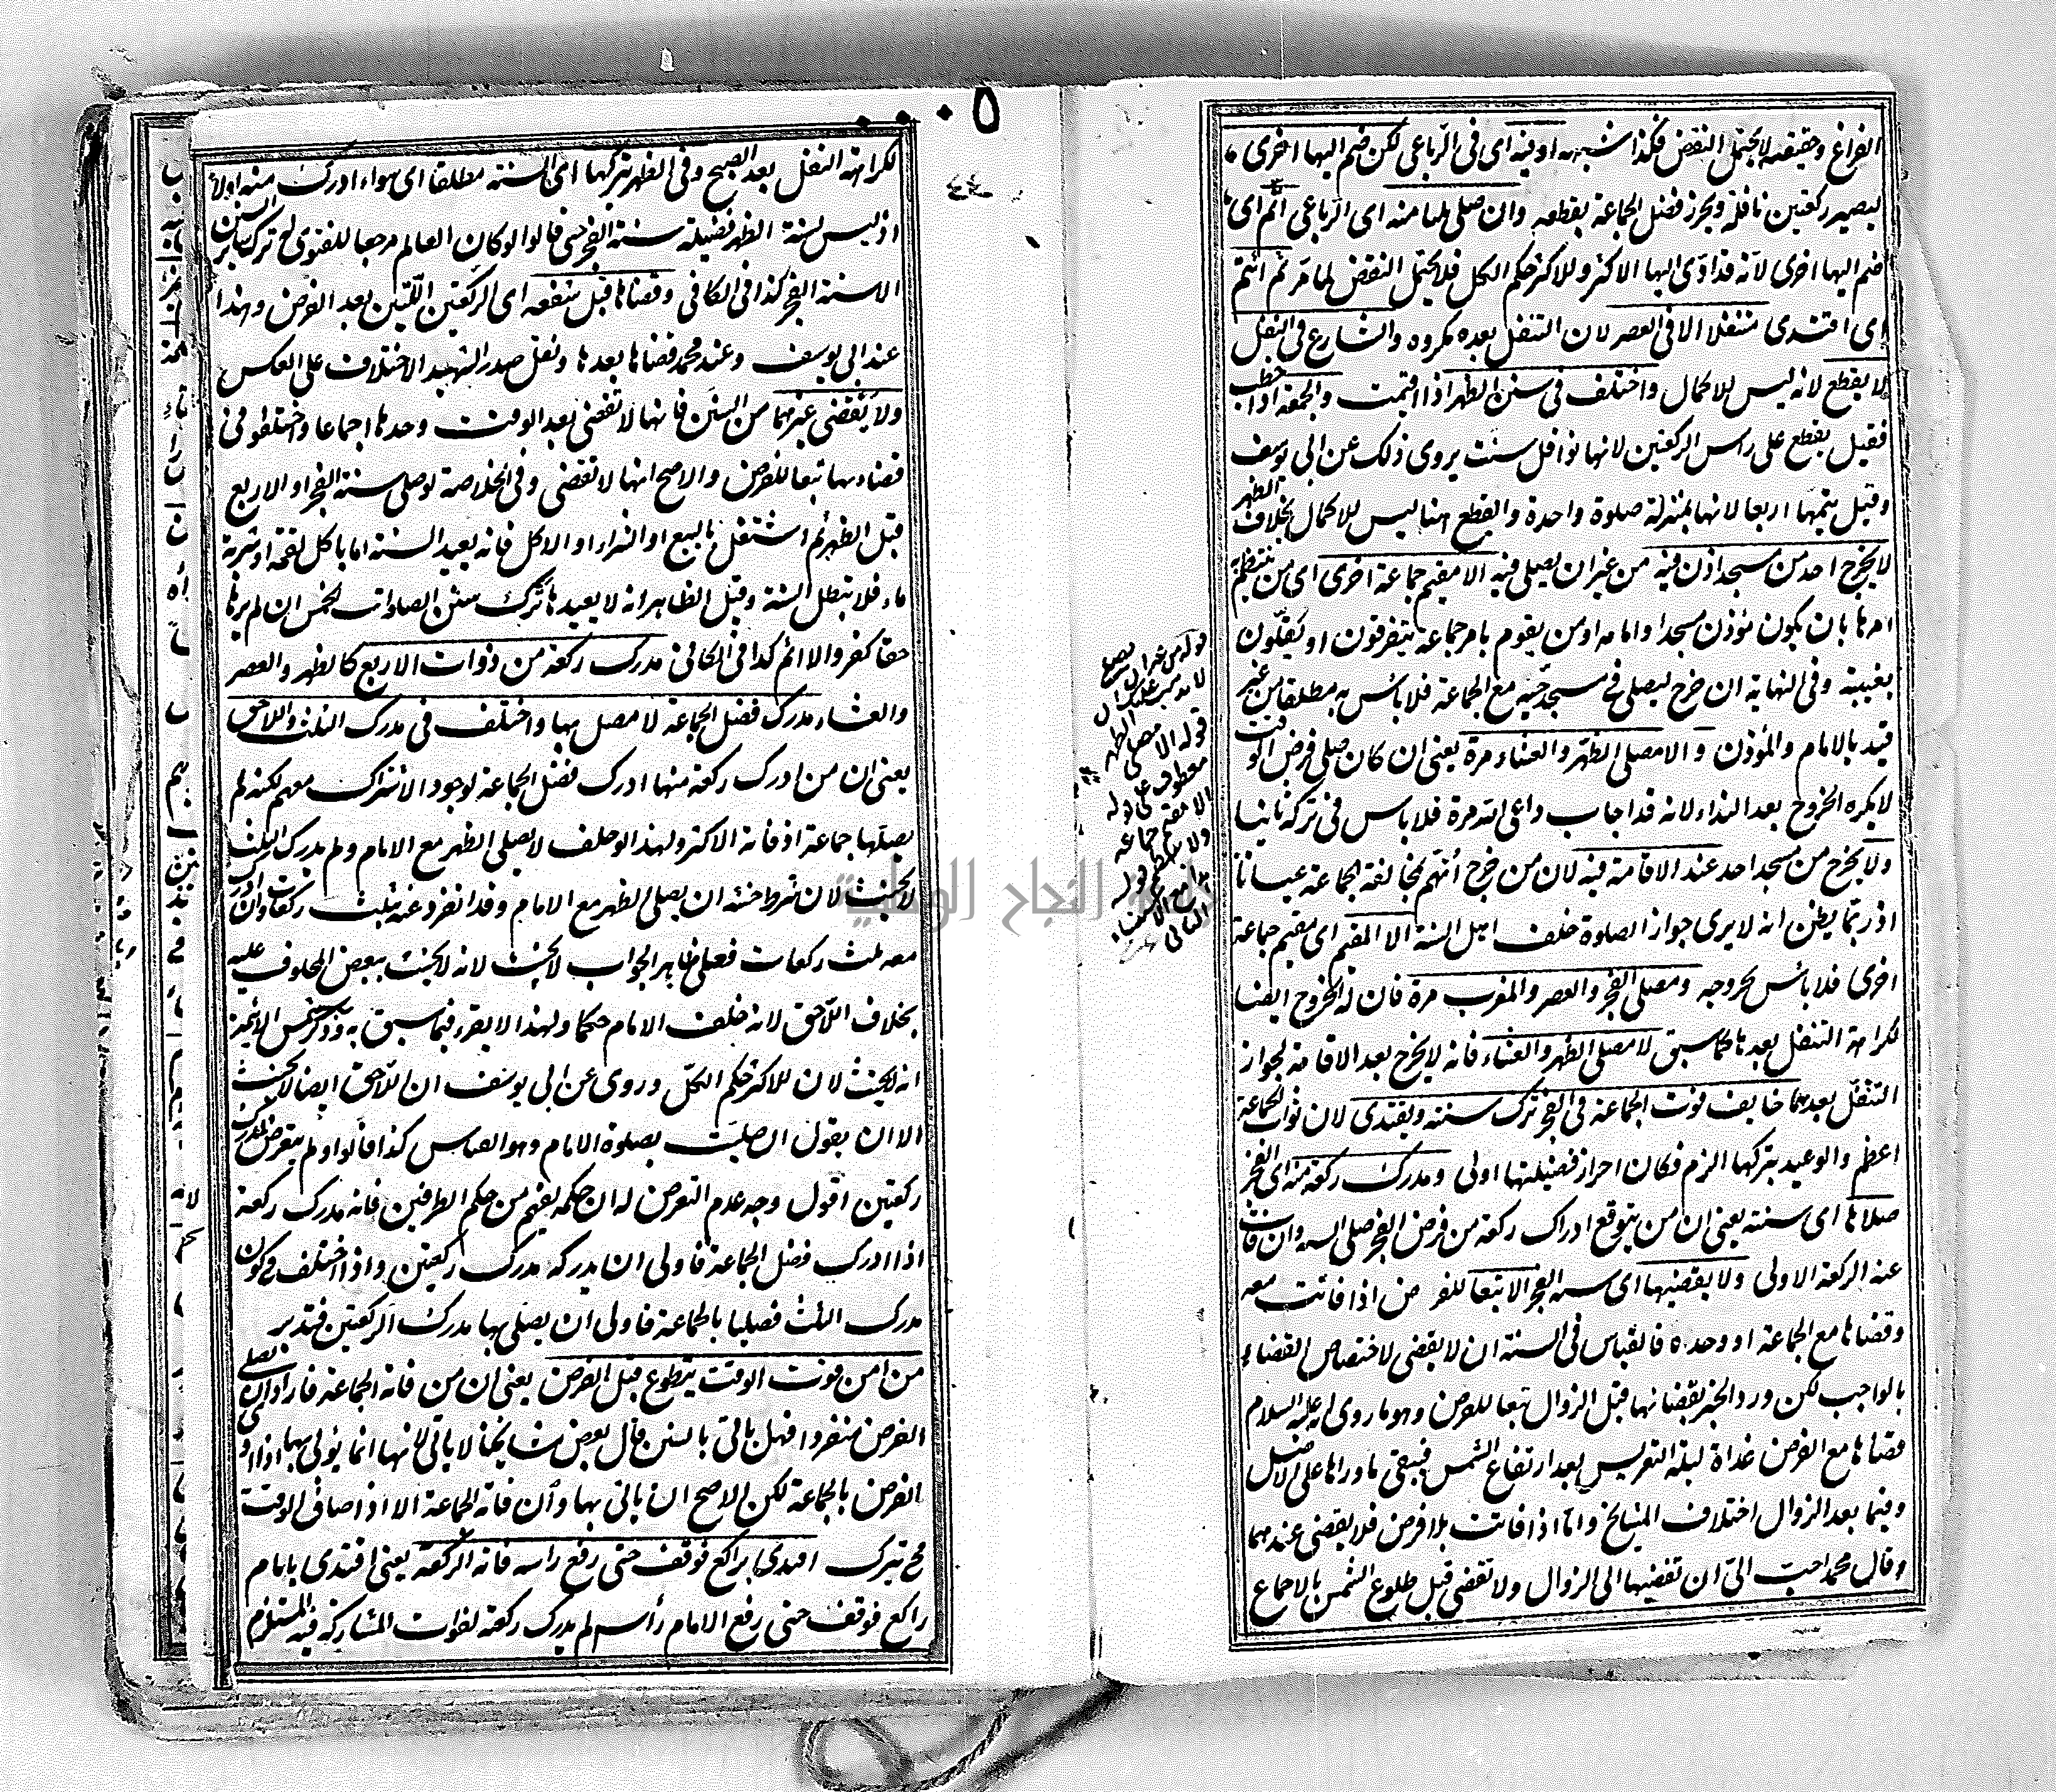 الفراغ وحقيقته لا يحتمل النقض فكذا شبهه او فيه اى فى الرباعى لكن ضم اليها اخرى
ليصير ركعتين نافلة ويحرز فضل الجماعة بقطعه وان صلى ثلثا منه اى الرباعى اتم اى
ضم اليها اخرى لانه قد ادى اليها الاكثر وللاكثر حكم الكل فلا يحتمل النقض لما مر ثم ائتم
اى اقتدى متنفلا الا فى العصر لان التنفل بعده مكروه والشارع فى النفل
لا يقطع لانه ليس للاكمال واختلف فى سنن الظهر اذا اقيمت والجمعة اذا خطب
فقيل يقطع على راس الركعتين لانها نوافل سنت يروى ذلك عن ابى يوسف
وقيل يتمها اربعا لانها بمنزلة صلوة واحدة والقطع هنا ليس للاكمال بخلاف الظهر
لا يخرج احد من مسجد اذن فيه من غير ان يصلى فيه الا مقيم جماعة اخرى اى من ينتظم به
امرها بان يكون مؤذن مسجد او امامه او من يقوم بامر جماعة يتفرقون او يقلون
بغيبته وفى النهاية ان خرج ليصلى فى مسجد حيه مع الجماعة فلا باس به مطلقا من غير
قيد بالامام والمؤذن و الا مصلى الظهر والعشاء مرة يعنى ان كان صلى فرض الوقت
لا يكره الخروج بعد النداء لانه قد اجاب داعى الله مرة فلا باس فى تركه ثانيا
ولا يخرج من مسجد احد عند الاقامة فيه لان من خرج اتهم بمخالفة الجماعة عيانا
اذ ربما يظن انه لا يرى جواز الصلوة خلف اهل السنة الا المقيم اى مقيم جماعة
اخرى فلا بأس بخروجه ومصلى الفجر والعصر والمغرب مرة فان له الخروج ايضا
لكراهة التنفل بعدها كما سبق لا مصلى الظهر والعشاء فانه لا يخرج بعد الاقامة لجواز
التنفل بعدهما خايف فوت الجماعة فى الفجر ترك سنته ويقتدى لان ثواب الجماعة
اعظم والوعيد بتركها الزم فكان احراز فضيلتها اولى ومدرك ركعة منه اى الفجر
صلاها اى سنته يعنى ان من يتوقع ادراك ركعة من فرض الفجر صلى السنة وان فاتت
عنه الركعة الاولى ولا يقضيها اى سنة الفجر الا تبعا للفرض اذا فاتت معه
وقضاها مع الجماعة او وحده فالقياس فى السنة ان لا يقضى لاختصاص القضاء
بالواجب لكن ورد الخبر بقضائها قبل الزوال تبعا للفرض وهو ما روى انه عليه السلام
قضاها مع الفرض غداة ليلة التعريس بعد ارتفاع الشمس فيبقى ما وراها على الاصل
وفيما بعد الزوال اختلاف المشايخ واما اذا فاتت بلا فرض فلا يقضى عندهما
وقال محمد احب الىّ ان تقضيها الى الزوال ولا تقضى قبل طلوع الشمس بالاجماع
قوله الا مصلى الظهر
معطوف على قوله
الا مقيم جماعة
٠٠٠٥
لكراهة النفل بعد الصبح وفى الظهر يتركها اى السنة مطلقا اى سواء ادرك منه اولا
اذ ليس لسنة الظهر فضيلة سنة الفجر حتى قالوا لو كان العالم مرجعا للفتوى له ترك سائر السنن
الا سنة الفجر كذا فى الكافى وقضاها قبل شفعه اى الركعتين اللتين بعد الفرض وهذا
عند ابى يوسف وعند محمد قضاها بعدها ونقل صدر الشهيد الاختلاف على العكس
ولا يقضى غيرهما من السنن فانها لا تقضى بعد الوقت وحدها اجماعا واختلفوا فى
قضاءها تبعا للفرض والاصح انها لا تقضى وفى الخلاصة لو صلى سنة الفجر او الاربع
قبل الظهر ثم اشتغل بالبيع او الشراء او الاكل فانه يعيد السنة اما باكل لقمة او شربة
ماء فلا تبطل السنة وقيل الظاهر انه لا يعيدها ترك سنن الصلوات الخمس ان لم يرها
حقا كفر والا اثم كذا فى الكافى مدرك ركعة من ذوات الاربع كالظهر والعصر
والعشاء مدرك فضل الجماعة لا مصل بها واختلف فى مدرك الثلث واللاحق
يعنى ان من ادرك ركعة منها ادرك فضل الجماعة لوجود الاشتراك معهم لكنه لم
يصلها جماعة اذ فاته الاكثر ولهذا لو حلف لا يصلى الظهر مع الامام ولم يدرك الثلث
لا يحنث لان شرط حنثه ان يصلى الظهر مع الامام وقد انفرد عنه بثلث ركعات وان ادرك
معه ثلث ركعات فعلى ظاهر الجواب لا يحنث لانه لا يحنث ببعض المحلوف عليه
بخلاف اللاحق لانه خلف الامام حكما ولهذا لا يقرء فيما سبق به وذكر شمس الائمة
انه يحنث لان للاكثر حكم الكل وروى عن ابى يوسف ان اللاحق ايضا لا يحنث
الا ان يقول ان صليت بصلوة الامام وهو القياس كذا قالوا ولم يتعرض لمدرك
ركعتين اقول وجه عدم التعرض له ان حكمه يفهم من حكم الطرفين فانه مدرك ركعة
اذا ادرك فضل الجماعة فاولى ان يدركه مدرك ركعتين واذا اختلف فى كون
مدرك الثلث مصليا بالجماعة فاولى ان يصلى بها مدرك الركعتين فتدبر
من امن فوت الوقت يتطوع قبل الفرض يعنى ان من فاته الجماعة فاراد ان يصلى
الفرض منفردا فهل ياتى بالسنن قال بعض مشايخنا لا ياتى لانها انما يؤتى بها اذا ادى
الفرض بالجماعة لكن الاصح ان ياتى بها وان فاته الجماعة الا اذا ضاق الوقت
فح تترك اقتدى براكع فوقف حتى رفع راسه فاته الركعة يعنى اقتدى بامام
راكع فوقف حتى رفع الامام رأسه لم يدرك ركعة لفوات المشاركة فيه المستلزم